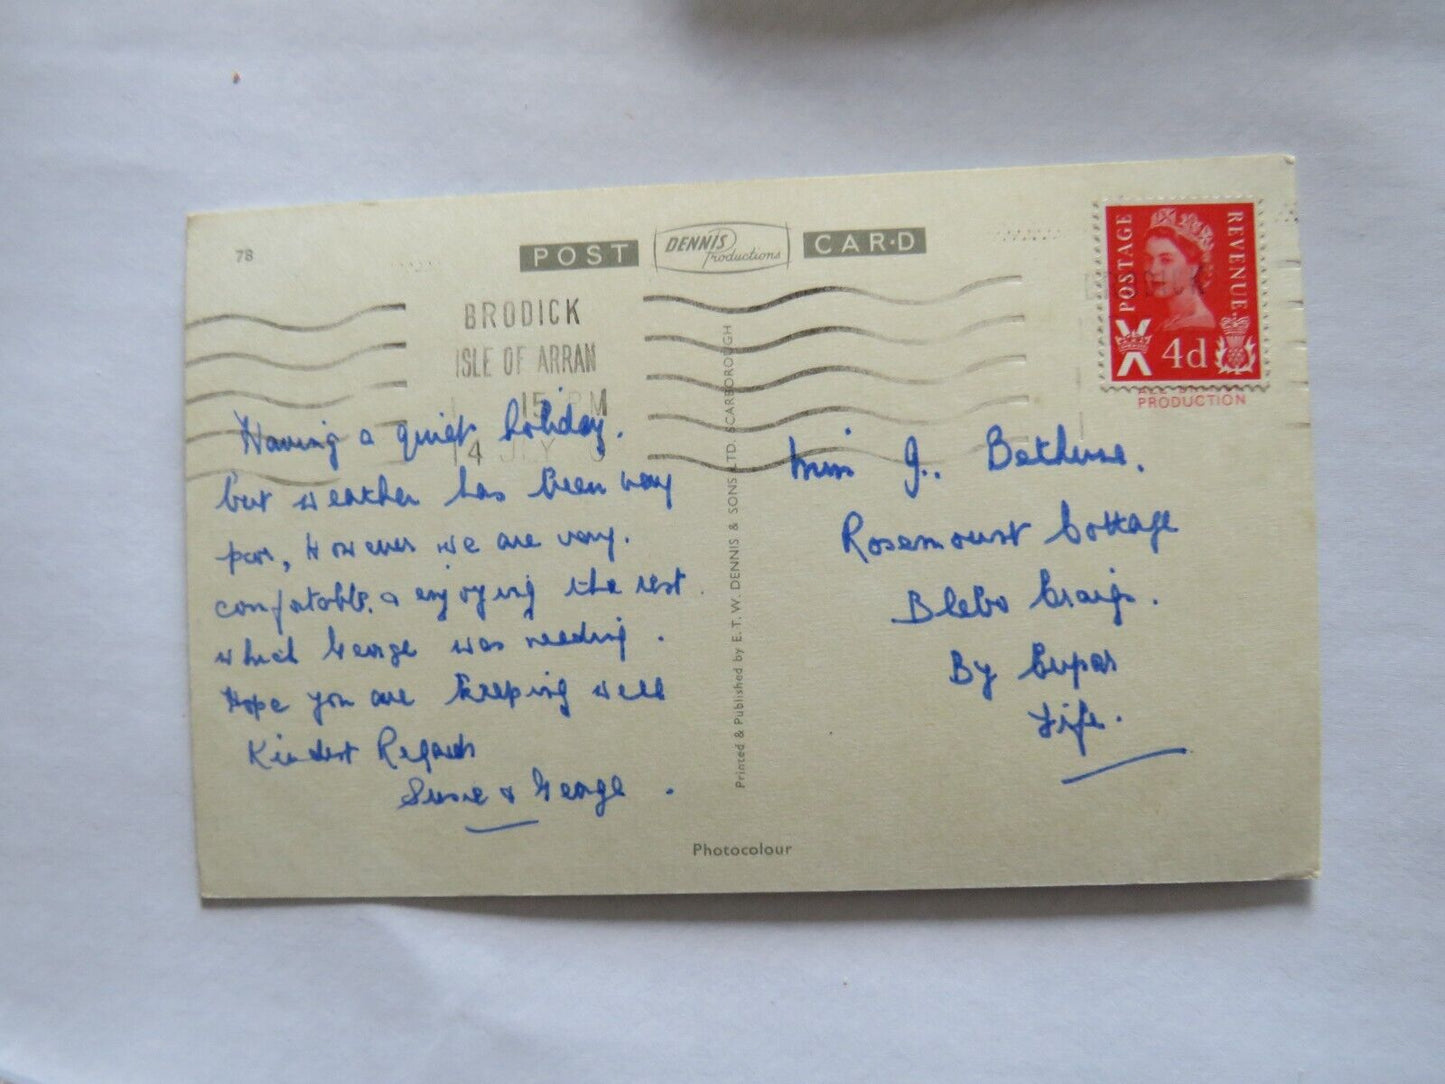 78
POST DENNIS Productions CARD
BRODICK
ISLE OF ARRAN
15 PM
14 JLY
POSTAGE
REVENUE
4d
PRODUCTION
Having a quiet holiday.
but weather has been very
poor, However we are very.
comfortable. & enjoying the rest.
which George was needing.
Hope you are keeping well
Kindest Regards
Susie & George.
Miss J. Bethune.
Rosemount Cottage
Blebo Craigs.
By Cupar
Fife.
Printed & Published by E. T. W. DENNIS & SONS LTD. SCARBOROUGH
Photocolour